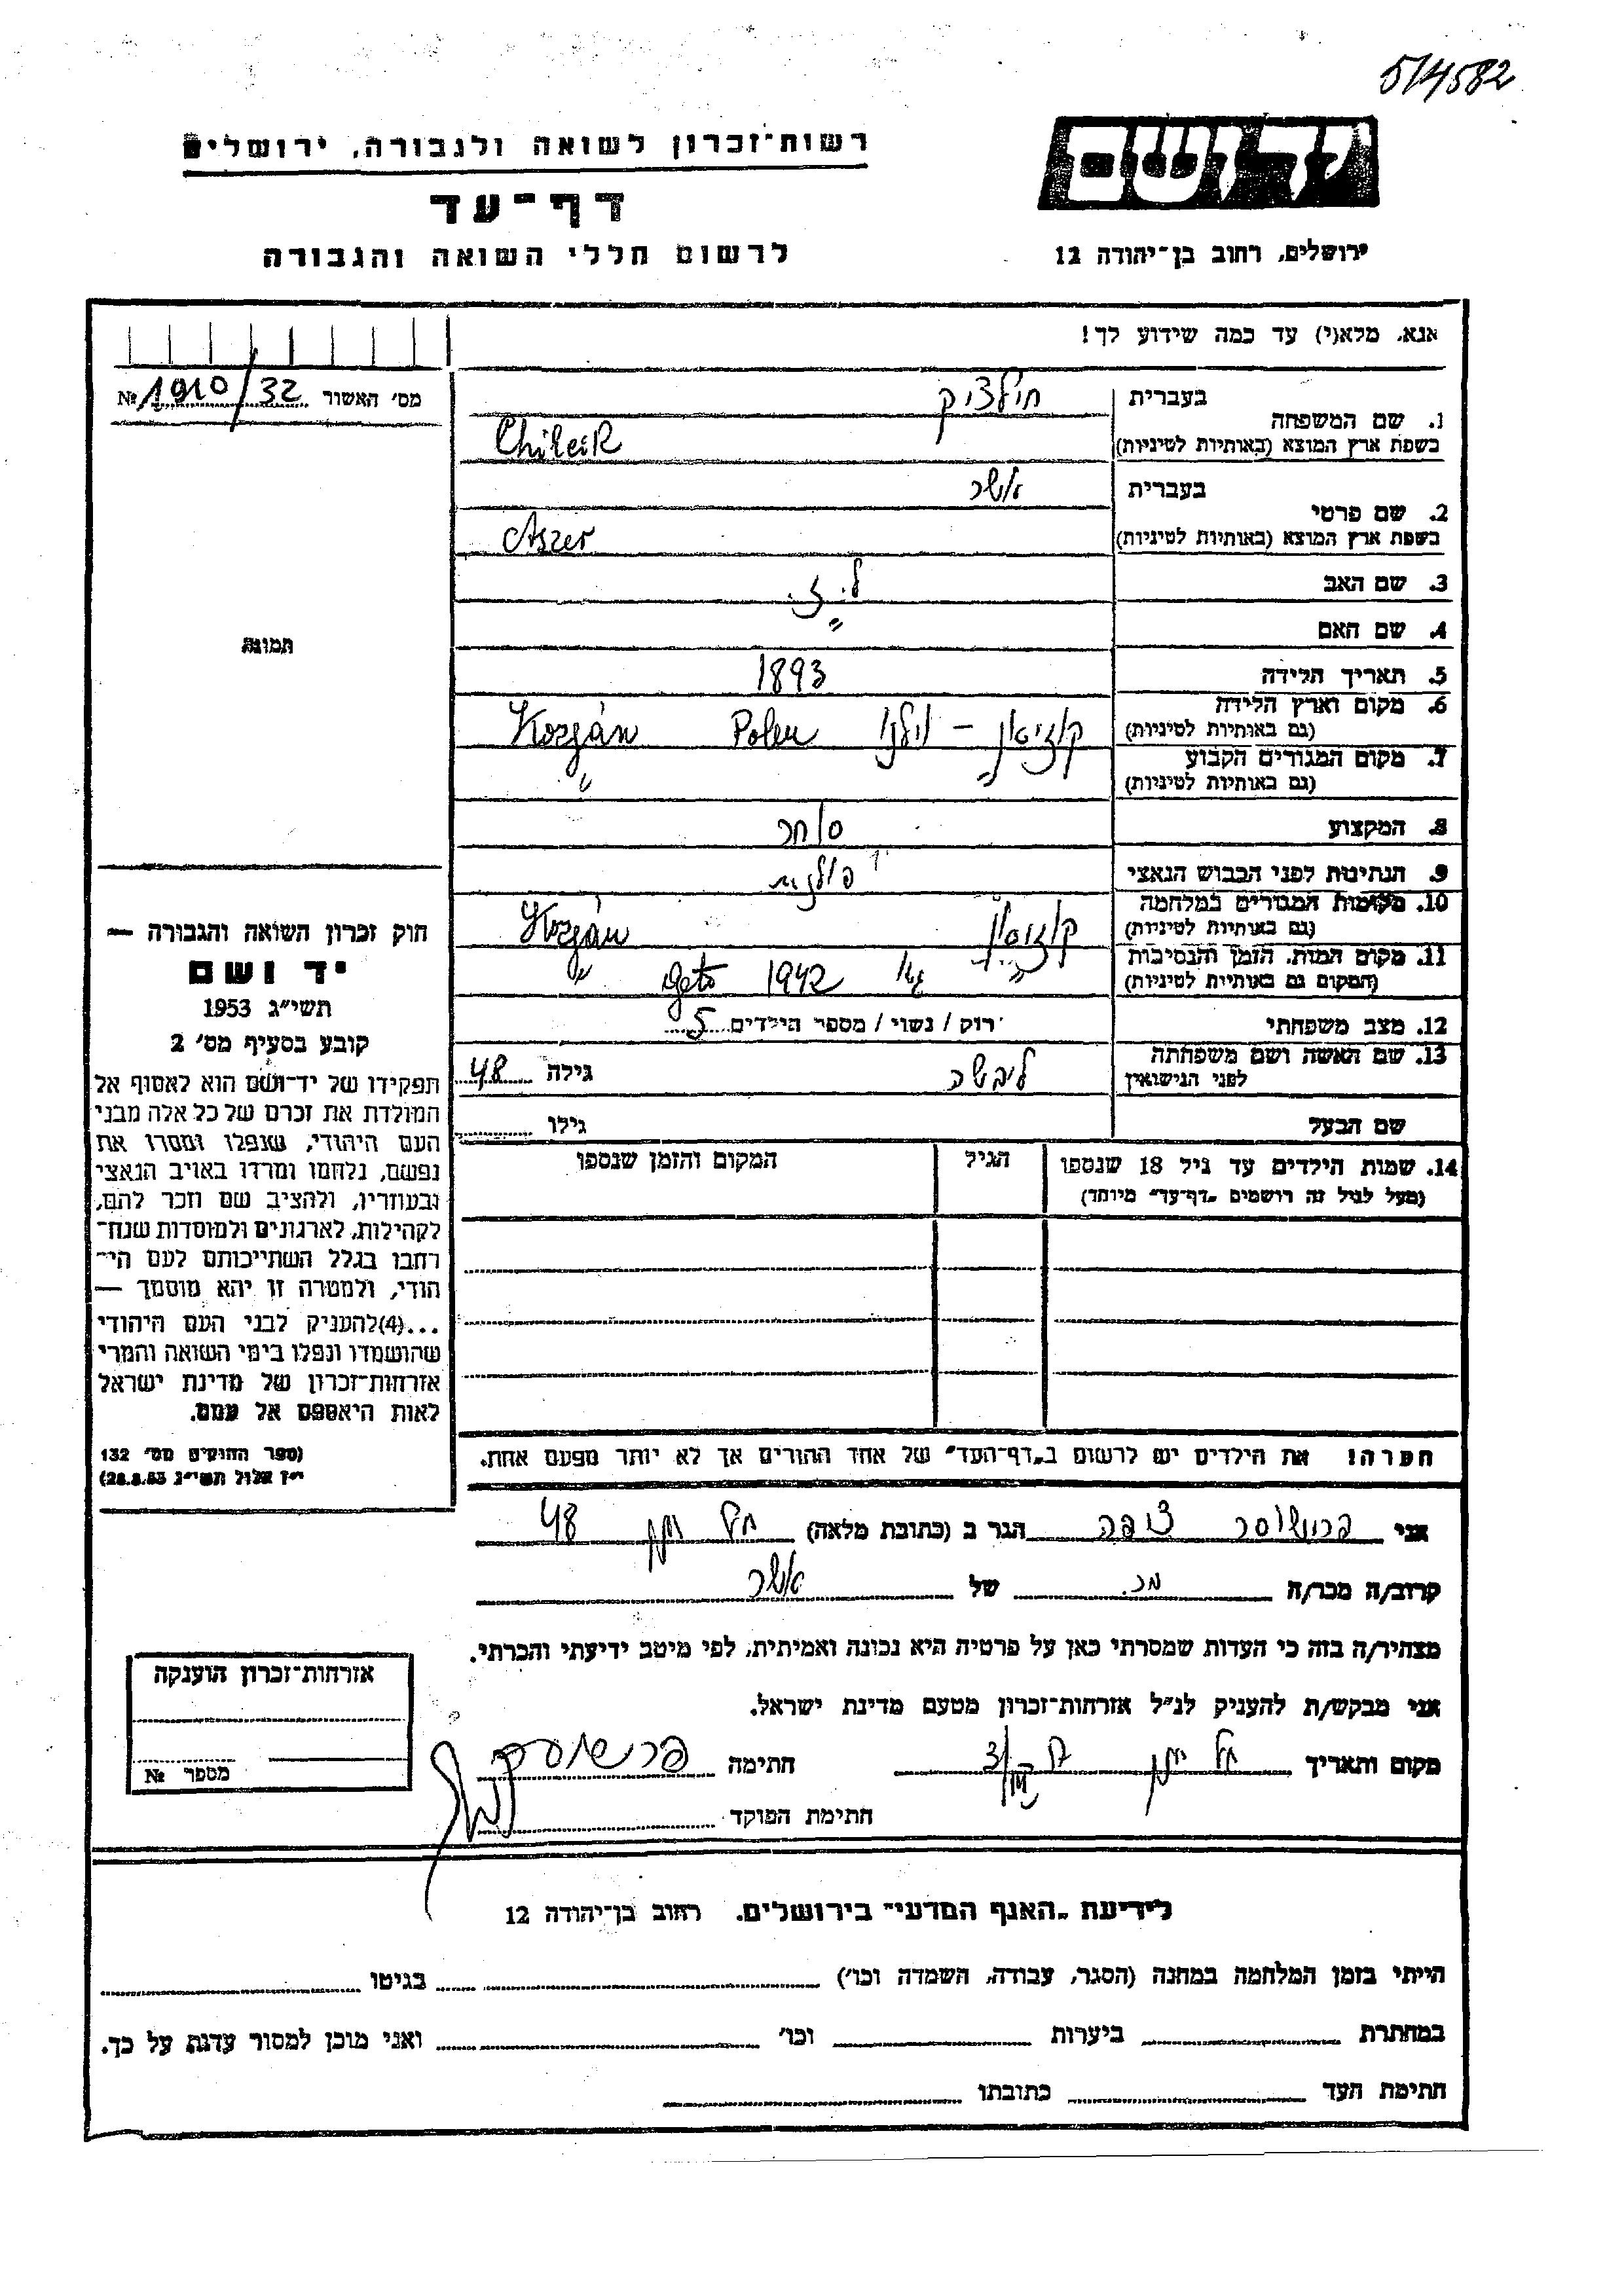 5/4582
יד ושם
רשות־זכרון לשואה ולגבורה, ירושלים
דף־עד
לרשום חללי השואה והגבורה
ירושלים, רחוב בן־יהודה 12
אנא, מלא(י) עד כמה שידוע לך!
מס' האשור 1910/32 №
1. שם המשפחה
בעברית חולצ'יק
בשפת ארץ המוצא (באותיות לטיניות) Chilcik
2. שם פרטי
בעברית אשר
בשפת ארץ המוצא (באותיות לטיניות) Aszer
3. שם האב
4. שם האם
5. תאריך הלידה 1893
6. מקום וארץ הלידה
(גם באותיות לטיניות) קוזיאן – וילנו Polen Kozján
7. מקום המגורים הקבוע
(גם באותיות לטיניות) " "
8. המקצוע סוחר
9. הנתינות לפני הכבוש הנאצי פולנית
10. מקומות המגורים במלחמה
(גם באותיות לטיניות) קוזיאן Kozján
11. מקום המות, הזמן והנסיבות
(המקום גם באותיות לטיניות) " 1942 Geto "
12. מצב משפחתי רוק / נשוי / מספר הילדים 5
13. שם האשה ושם משפחתה
לפני הנישואין ליבשה גילה 48
שם הבעל גילו
14. שמות הילדים עד גיל 18 שנספו
(מעל לגיל זה רושמים „דף־עד" מיוחד)
הגיל
המקום והזמן שנספו
תמונה
חוק זכרון השואה והגבורה —
יד ושם
תשי"ג 1953
קובע בסעיף מס' 2
תפקידו של יד־ושם הוא לאסוף אל
המולדת את זכרם של כל אלה מבני
העם היהודי, שנפלו ומסרו את
נפשם, נלחמו ומרדו באויב הנאצי
ובעוזריו, ולהציב שם וזכר להם,
לקהילות, לארגונים ולמוסדות שנח־
רחבו בגלל השתייכותם לעם הי־
הודי, ולמטרה זו יהא מוסמך —
...(4)להעניק לבני העם היהודי
שהושמדו ונפלו בימי השואה והמרי
אזרחות־זכרון של מדינת ישראל
לאות היאספם אל עמם.
(ספר החוקים מס' 132
י"ז אלול תשי"ג 28.8.53)
הערה! את הילדים יש לרשום ב„דף־העד" של אחד ההורים אך לא יותר מפעם אחת.
אני צופה הגר ב (כתובת מלאה) 48
קרוב/ה מכר/ה מכר של אשר
מצהיר/ה בזה כי העדות שמסרתי כאן על פרטיה היא נכונה ואמיתית, לפי מיטב ידיעתי והכרתי.
אני מבקש/ת להעניק לנ"ל אזרחות־זכרון מטעם מדינת ישראל.
מקום ותאריך חתימה
חתימת הפוקד
אזרחות־זכרון הוענקה
מספר №
לידיעת „האגף המדעי" בירושלים, רחוב בן־יהודה 12
הייתי בזמן המלחמה במחנה (הסגר, עבודה, השמדה וכו') בגיטו
במחתרת ביערות וכו' ואני מוכן למסור עדות על כך.
חתימת העד כתובתו